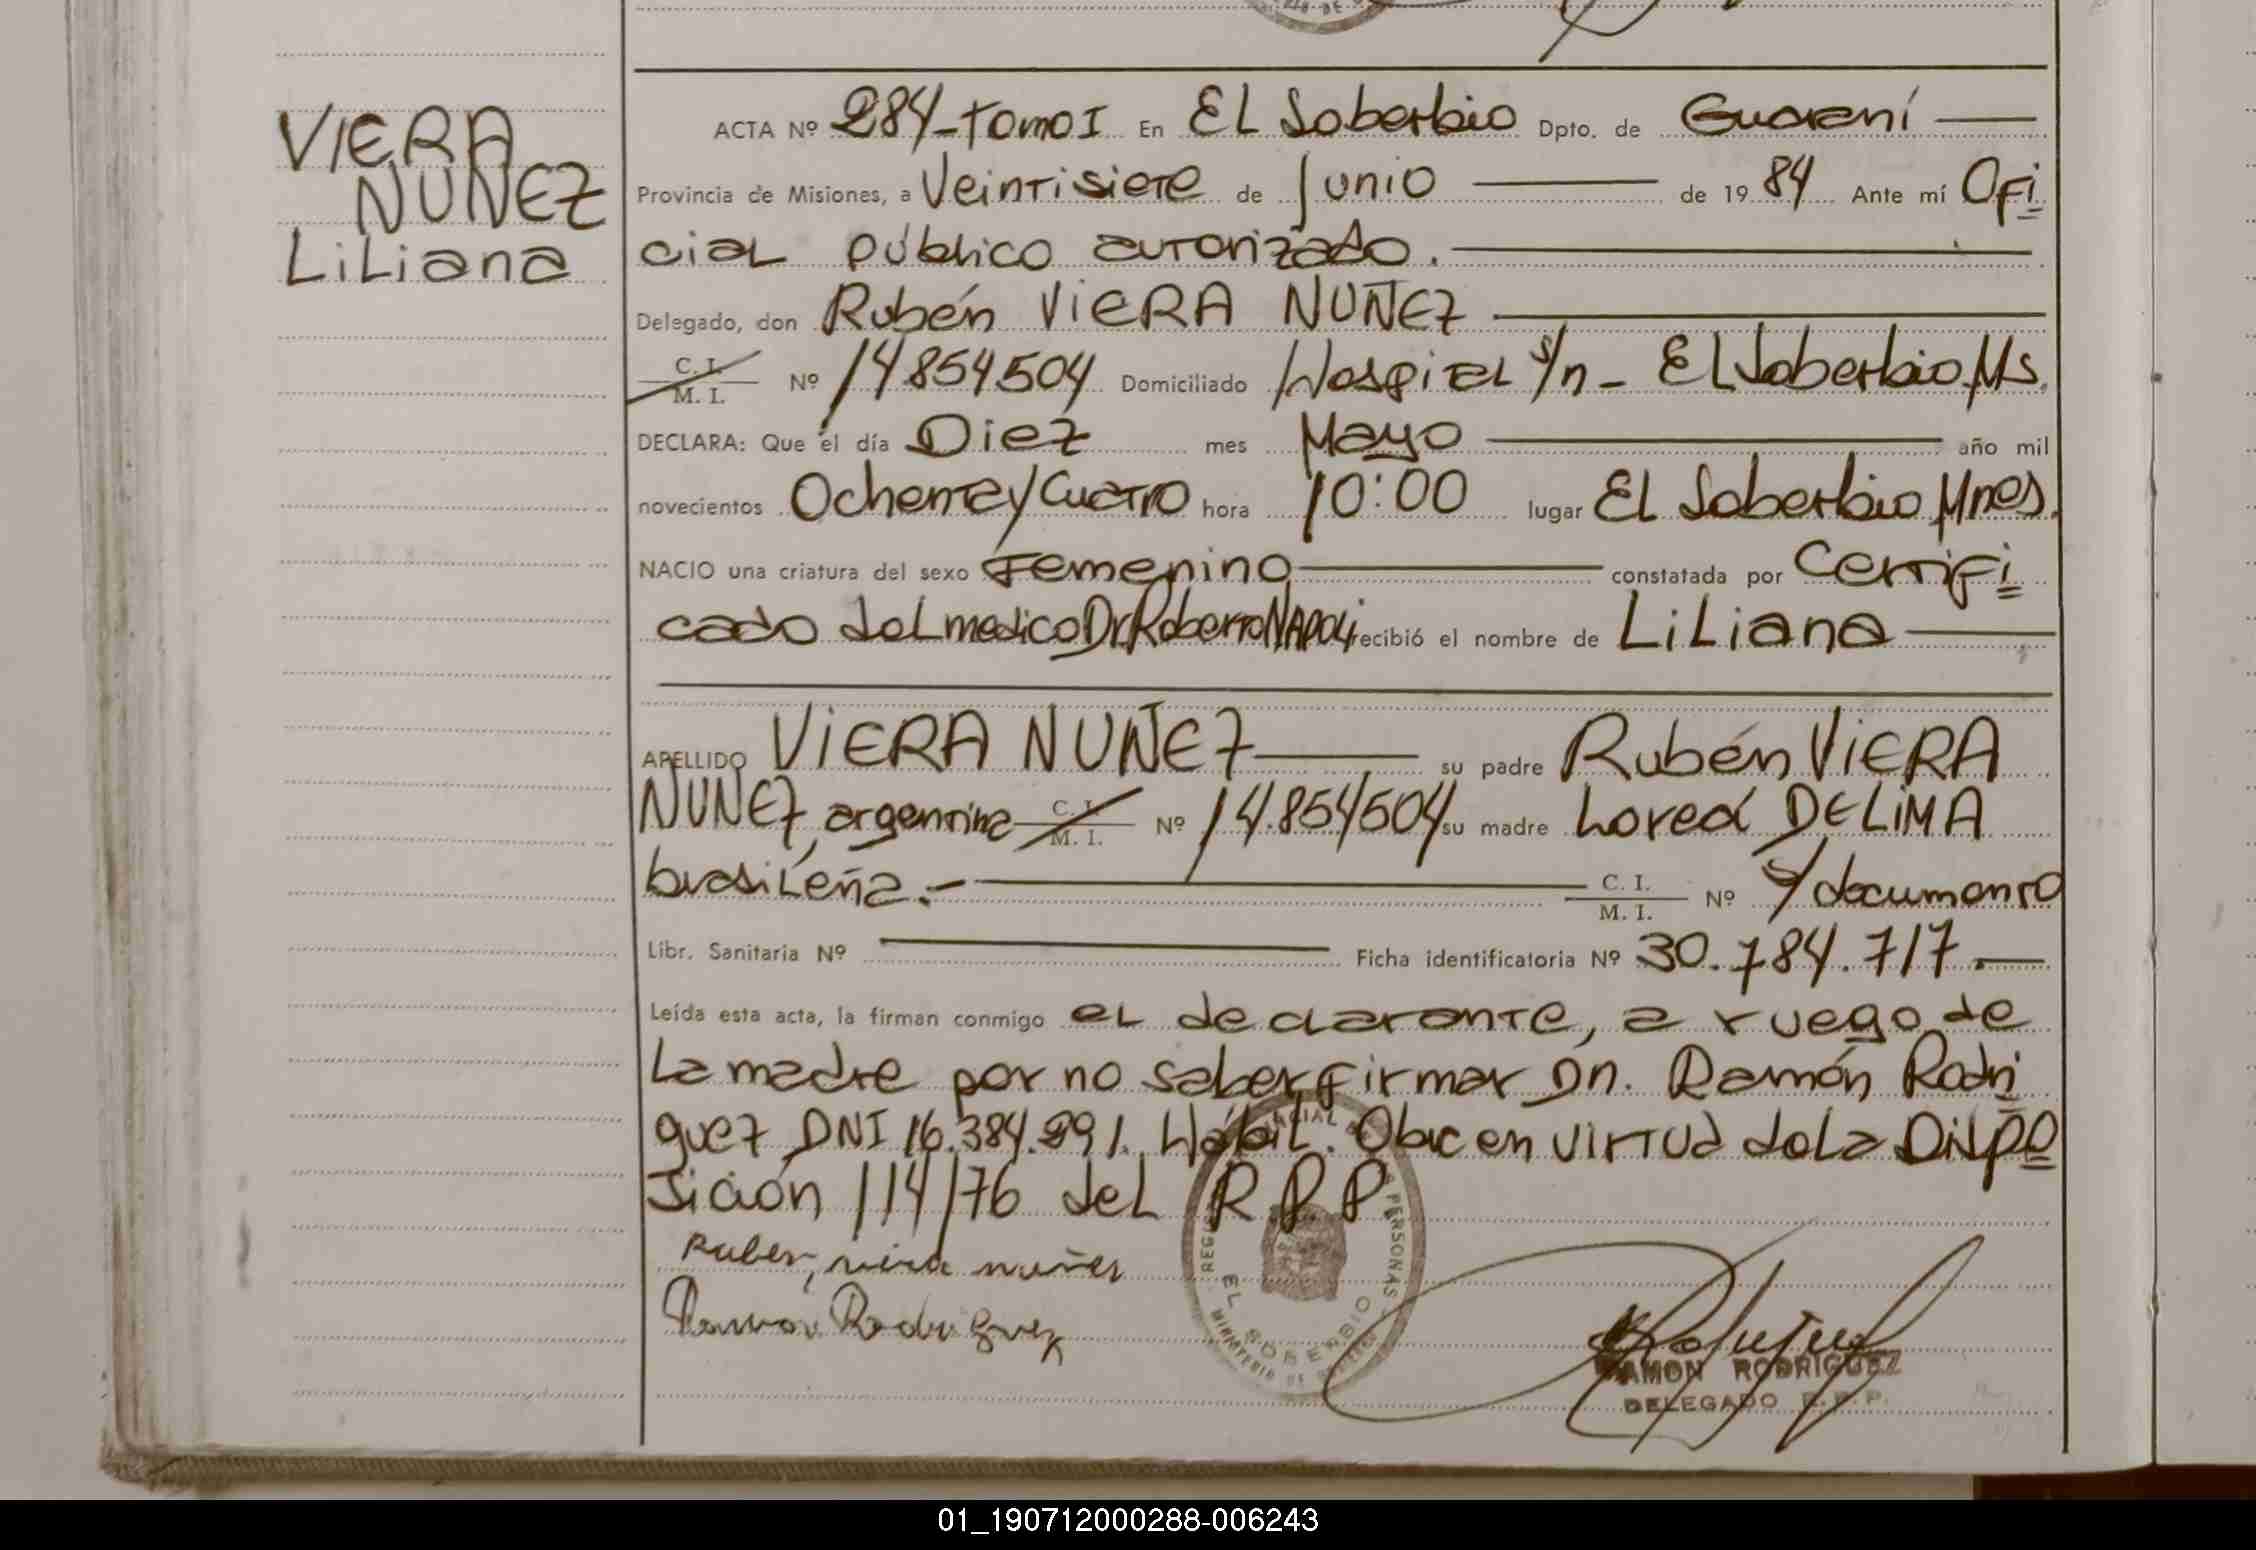 VIERA
NUÑEZ
Liliana
ACTA Nº 284-Tomo I En El Soberbio Dpto. de Guaraní
Provincia de Misiones, a Veintisiete de Junio de 1984 Ante mí Ofi
cial público autorizado.
Delegado, don Rubén VIERA NUÑEZ
C. I. / M. I. Nº 14.854.504 Domiciliado Hospital s/n - El Soberbio Ms.
DECLARA: Que el día Diez mes Mayo año mil
novecientos Ochenta y Cuatro hora 10:00 lugar El Soberbio Mnes.
NACIO una criatura del sexo Femenino constatada por Certifi
cado del medico Dr. Roberto NAPOLI recibió el nombre de Liliana
APELLIDO VIERA NUÑEZ su padre Rubén VIERA
NUÑEZ, argentina C. I. / M. I. Nº 14.854504 su madre Loreci DELIMA
brasileña.- C. I. / M. I. Nº s/documento
Libr. Sanitaria Nº Ficha identificatoria Nº 30.784.717.
Leída esta acta, la firman conmigo el declarante, a ruego de
la madre por no saber firmar Dn. Ramón Rodri
guez DNI 16.384.291. Hábil. Obra en virtud de la Dispo
sición 114/76 del R P P
Ruben, viera nuñes
Ramon Rodriguez
EL SOBERBIO
RAMON RODRIGUEZ
DELEGADO R.P.P.
01_190712000288-006243